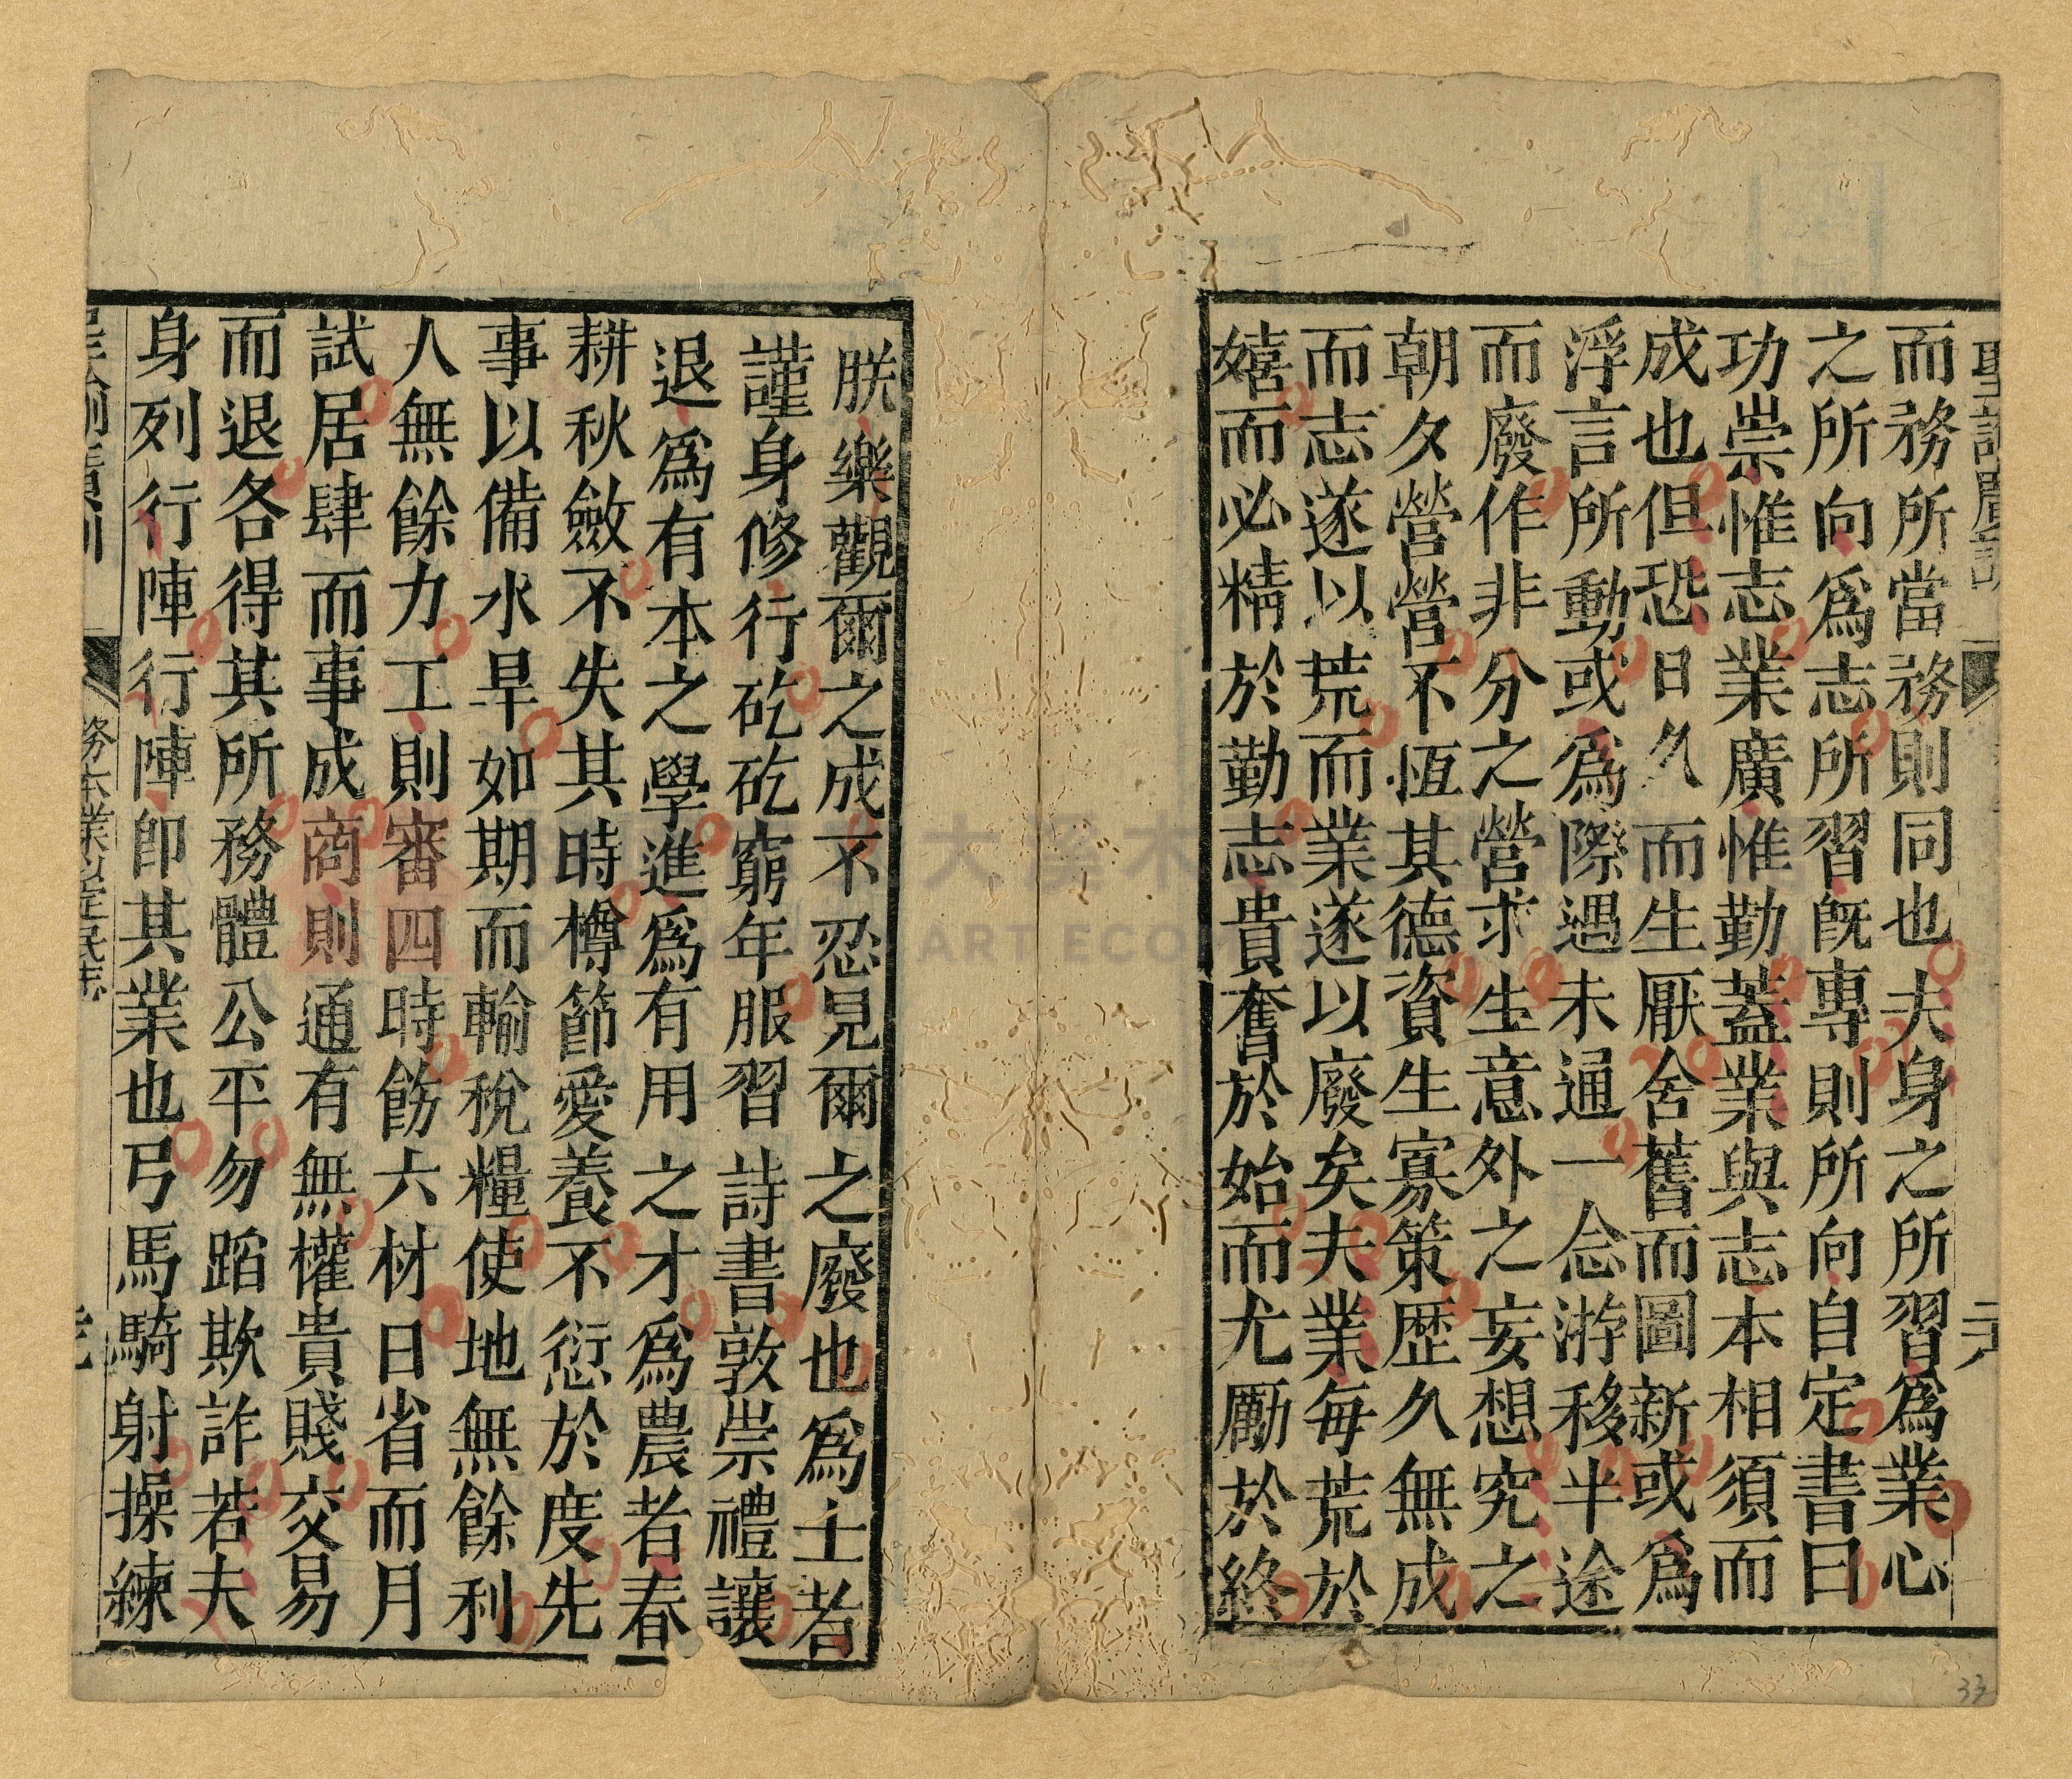 聖諭廣訓
而務所當務則同也夫身之所習爲業心
之所向爲志所習旣專則所向自定書曰
功崇惟志業廣惟勤蓋業與志本相須而
成也但恐日久而生厭舍舊而圖新或爲
浮言所動或爲際遇未通一念游移半途
而廢作非分之營求生意外之妄想究之
朝夕營營不恆其德資生寡策歷久無成
而志遂以荒而業遂以廢矣夫業每荒於
嬉而必精於勤志貴奮於始而尤勵於終
朕樂觀爾之成不忍見爾之廢也爲士者
謹身修行矻矻窮年服習詩書敦崇禮讓
退爲有本之學進爲有用之才爲農者春
耕秋斂不失其時樽節愛養不愆於度先
事以備水旱如期而輸稅糧使地無餘利
人無餘力工則審四時飭六材日省而月
試居肆而事成商則通有無權貴賤交易
而退各得其所務體公平勿蹈欺詐若夫
身列行陣行陣卽其業也弓馬騎射操練
務本業以定民志
33